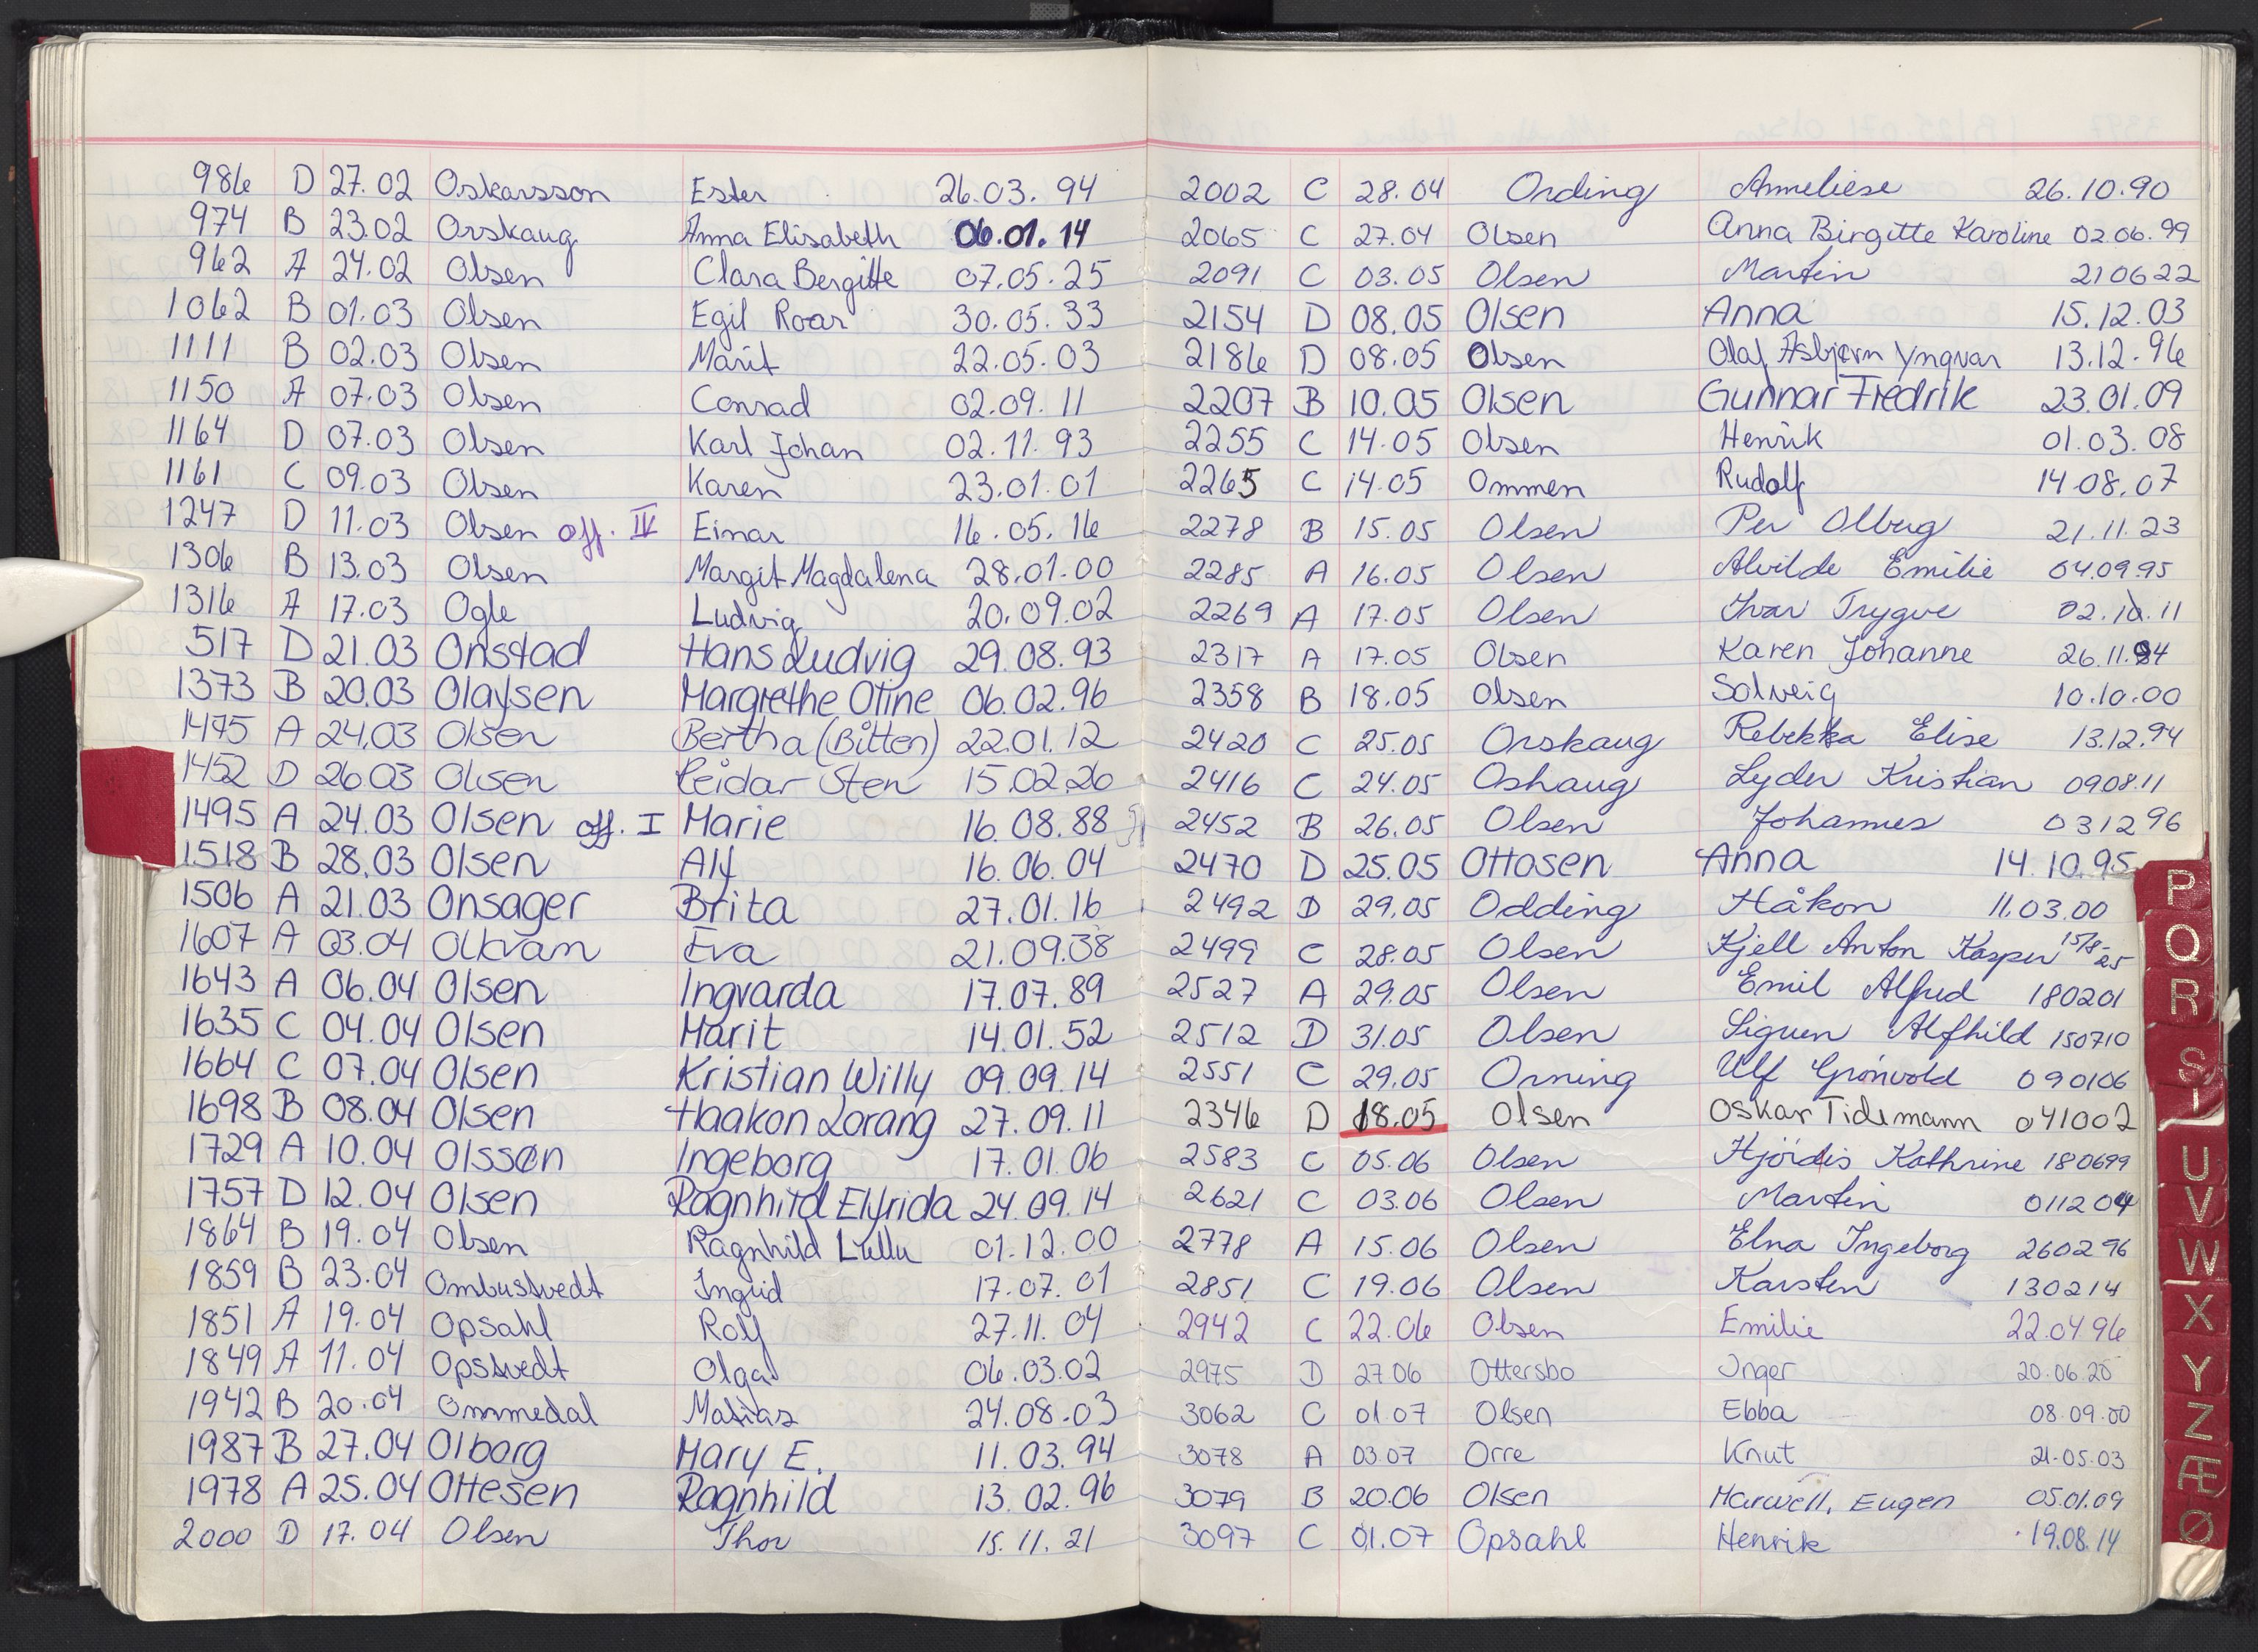 986 D 27.02 Oskarsson Ester 26.03.94
974 B 23.02 Orskaug Anna Elisabeth 06.01.14
962 A 24.02 Olsen Clara Bergitte 07.05.25
1062 B 01.03 Olsen Egil Roar 30.05.33
1111 B 02.03 Olsen Marit 22.05.03
1150 A 07.03 Olsen Conrad 02.09.11
1164 D 07.03 Olsen Karl Johan 02.11.93
1161 C 09.03 Olsen Karen 23.01.01
1247 D 11.03 Olsen off. IV Einar 16.05.16
1306 B 13.03 Olsen Margit Magdalena 28.01.00
1316 A 17.03 Ogle Ludvig 20.09.02
517 D 21.03 Onstad Hans Ludvig 29.08.93
1373 B 20.03 Olafsen Margrethe Otine 06.02.96
1475 A 24.03 Olsen Bertha (Bitten) 22.01.12
1452 D 26.03 Olsen Reidar Sten 15.02.20
1495 A 24.03 Olsen off. I Marie 16.08.88
1518 B 28.03 Olsen Alf 16.06.04
1506 A 21.03 Onsager Brita 27.01.16
1607 A 03.04 Olkvam Eva 21.09.38
1643 A 06.04 Olsen Ingvarda 17.07.89
1635 C 04.04 Olsen Marit 14.01.52
1664 C 07.04 Olsen Kristian Willy 09.09.14
1698 B 08.04 Olsen Haakon Lorang 27.09.11
1729 A 10.04 Olssøn Ingeborg 17.01.06
1757 D 12.04 Olsen Ragnhild Elfrida 24.09.14
1864 B 19.04 Olsen Ragnhild Lullu 01.12.00
1859 B 23.04 Ombustvedt Ingrid 17.07.01
1851 A 19.04 Opsahl Rolf 27.11.04
1849 A 11.04 Opstvedt Olga 06.03.02
1942 B 20.04 Ommedal Matias 24.08.03
1987 B 27.04 Olborg Mary E. 11.03.94
1978 A 25.04 Ottesen Ragnhild 13.02.96
2000 D 17.04 Olsen Thor 15.11.21
2002 C 28.04 Ording Anneliese 26.10.90
2065 C 27.04 Olsen Anna Birgitte Karoline 02.06.99
2091 C 03.05 Olsen Martin 210622
2154 D 08.05 Olsen Anna 15.12.03
2186 D 08.05 Olsen Olaf Asbjørn Yngvar 13.12.96
2207 B 10.05 Olsen Gunnar Fredrik 23.01.09
2255 C 14.05 Olsen Henrik 01.03.08
2265 C 14.05 Ommen Rudolf 14.08.07
2278 B 15.05 Olsen Per Olberg 21.11.23
2285 A 16.05 Olsen Alvilde Emilie 04.09.95
2269 A 17.05 Olsen Ivar Trygve 02.10.11
2317 A 17.05 Olsen Karen Johanne 26.11.94
2358 B 18.05 Olsen Solveig 10.10.00
2420 C 25.05 Orskaug Rebekka Elise 13.12.94
2416 C 24.05 Oshaug Lyder Kristian 090811
2452 B 26.05 Olsen Johannes 031296
2470 D 25.05 Ottosen Anna 14.10.95
2492 D 29.05 Odding Håkon 11.03.00
2499 C 28.05 Olsen Kjell Anton Kasper 15/8-25
2527 A 29.05 Olsen Emil Alfred 180201
2512 D 31.05 Olsen Sigrun Alfhild 150710
2551 C 29.05 Orning Ulf Grönvold 090106
2346 D 18.05 Olsen Oskar Tidemann 041002
2583 C 05.06 Olsen Hjördis Kathrine 180699
2621 C 03.06 Olsen Martin 011204
2778 A 15.06 Olsen Elna Ingeborg 260296
2851 C 19.06 Olsen Karsten 130214
2942 C 22.06 Olsen Emilie 22.04.96
2975 D 27.06 Ottersbo Inger 20.06.20
3062 C 01.07 Olsen Ebba 08.09.00
3078 A 03.07 Orre Knut 21.05.03
3079 B 20.06 Olsen Marwell, Eugen 05.01.09
3097 C 01.07 Opsahl Henrik 19.08.14
P
Q
R
S
T
U
V
W
X
Y
Z
Æ
Ø